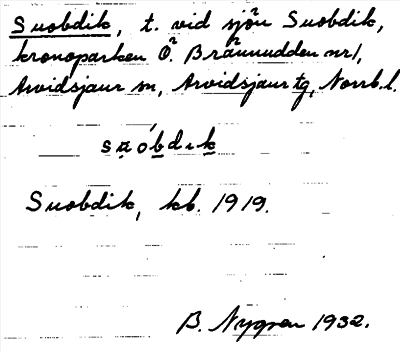 Suobdik, t. vid sjön Suobdik,
kronoparken Ö. Brännudden nr 1,
Arvidsjaur sn, Arvidsjaur tg, Norrb. l.
suóbdik
Suobdik, kb. 1919.
B. Nygren 1932.